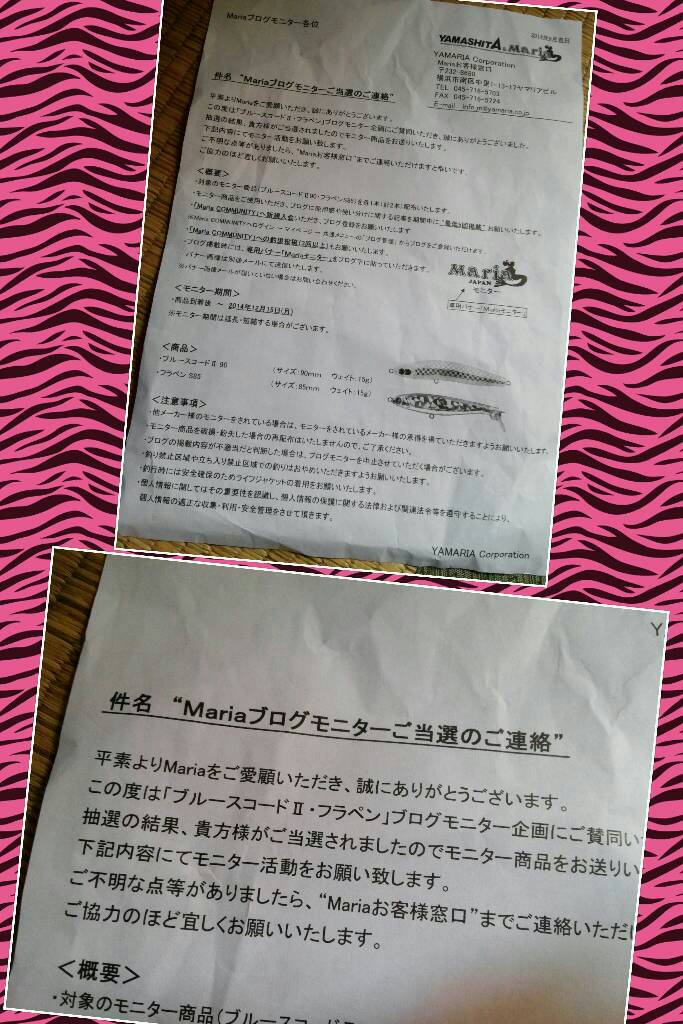 Mariaブログモニター各位
YAMASHITA & Maria
YAMARIA Corporation
Mariaお客様窓口
〒232-8680
横浜市南区中里1-13-17ヤマリアビル
TEL 045-716-5703
FAX 045-716-5724
E-mail info_m@yamaria.co.jp
件名 “Mariaブログモニターご当選のご連絡”
平素よりMariaをご愛顧いただき、誠にありがとうございます。
この度は「ブルースコードⅡ・フラペン」ブログモニター企画にご賛同いただき、誠にありがとうございました。
抽選の結果、貴方様がご当選されましたのでモニター商品をお送りいたします。
下記内容にてモニター活動をお願い致します。
ご不明な点等がありましたら、“Mariaお客様窓口”までご連絡いただけますと幸いです。
ご協力のほど宜しくお願いいたします。
＜概要＞
・対象のモニター商品(ブルースコードⅡ90・フラペンS85)を各1本(計2本)配布いたします。
・モニター商品をご使用いただき、ブログに使用感や使い分けに関する記事を期間中に お願いいたします。
・「Maria COMMUNITY」へ新規入会いただき、ブログ登録をお願いいたします
※Maria COMMUNITYへログイン → マイページ → 「ブログ管理」からブログをご登録いただけます。
・「Maria COMMUNITY」への釣果投稿(3匹以上)もお願いいたします。
・ブログ掲載時には、専用バナー「Mariaモニター」をブログ下に貼っていただきます。
バナー画像は別途メールにて送信いたします。
※バナー画像メールが届いていない場合はお問い合わせください。
Maria
JAPAN
モニター
専用バナー「Mariaモニター」
＜モニター期間＞
・商品到着後 ～ 2014年12月15日(月)
※モニター期間は延長・短縮する場合がございます。
＜商品＞
・ブルースコードⅡ 90 (サイズ:90mm ウェイト:15g)
・フラペン S85 (サイズ:85mm ウェイト:15g)
＜注意事項＞
・他メーカー様のモニターをされている場合は、モニターをされているメーカー様の承諾を得ていただきますようお願いいたします。
・モニター商品を破損・紛失した場合の再配布はいたしませんので、ご了承ください。
・ブログの掲載内容が不適当だと判断した場合は、ブログモニターを中止させていただく場合がございます。
・釣り禁止区域や立ち入り禁止区域での釣りはおやめいただきますようお願いいたします。
・釣行時には安全確保のためライフジャケットの着用をお願いいたします。
・個人情報に関してはその重要性を認識し、個人情報の保護に関する法律および関連法令等を遵守することにより、
個人情報の適正な収集・利用・安全管理をさせて頂きます。
YAMARIA Corporation
Y
件名 “Mariaブログモニターご当選のご連絡”
平素よりMariaをご愛顧いただき、誠にありがとうございます。
この度は「ブルースコードⅡ・フラペン」ブログモニター企画にご賛同い
抽選の結果、貴方様がご当選されましたのでモニター商品をお送りい
下記内容にてモニター活動をお願い致します。
ご不明な点等がありましたら、“Mariaお客様窓口”までご連絡いただ
ご協力のほど宜しくお願いいたします。
＜概要＞
・対象のモニター商品(ブルースコード